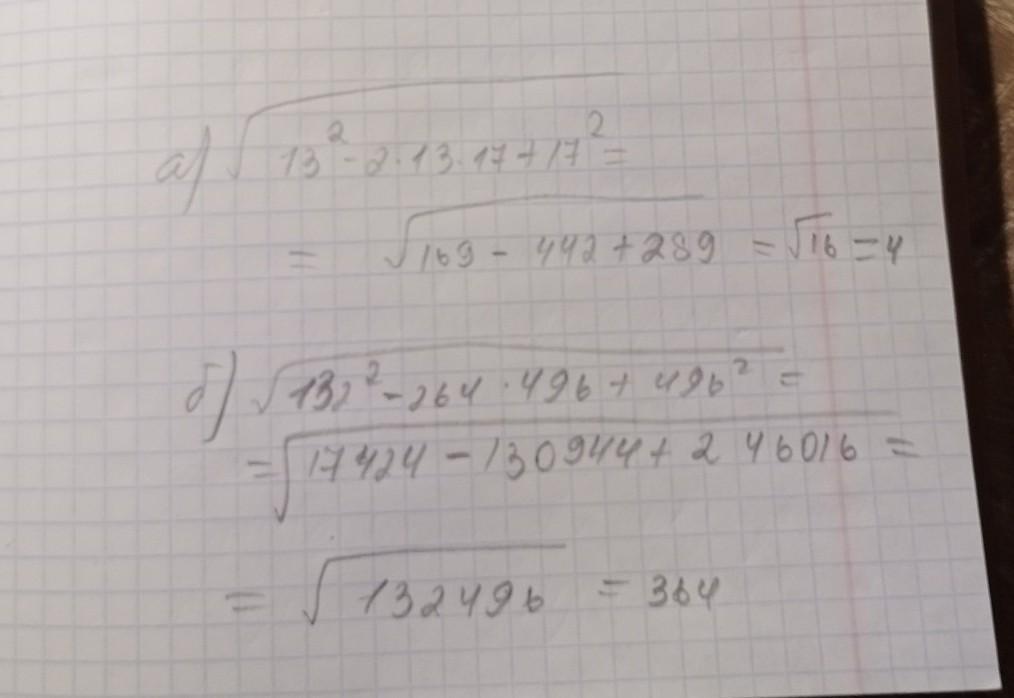 а) √13² - 2·13·17 + 17² =
= √169 - 442 + 289 = √16 = 4
б) √132² - 264·496 + 496² =
= √17424 - 130944 + 246016 =
= √132496 = 364